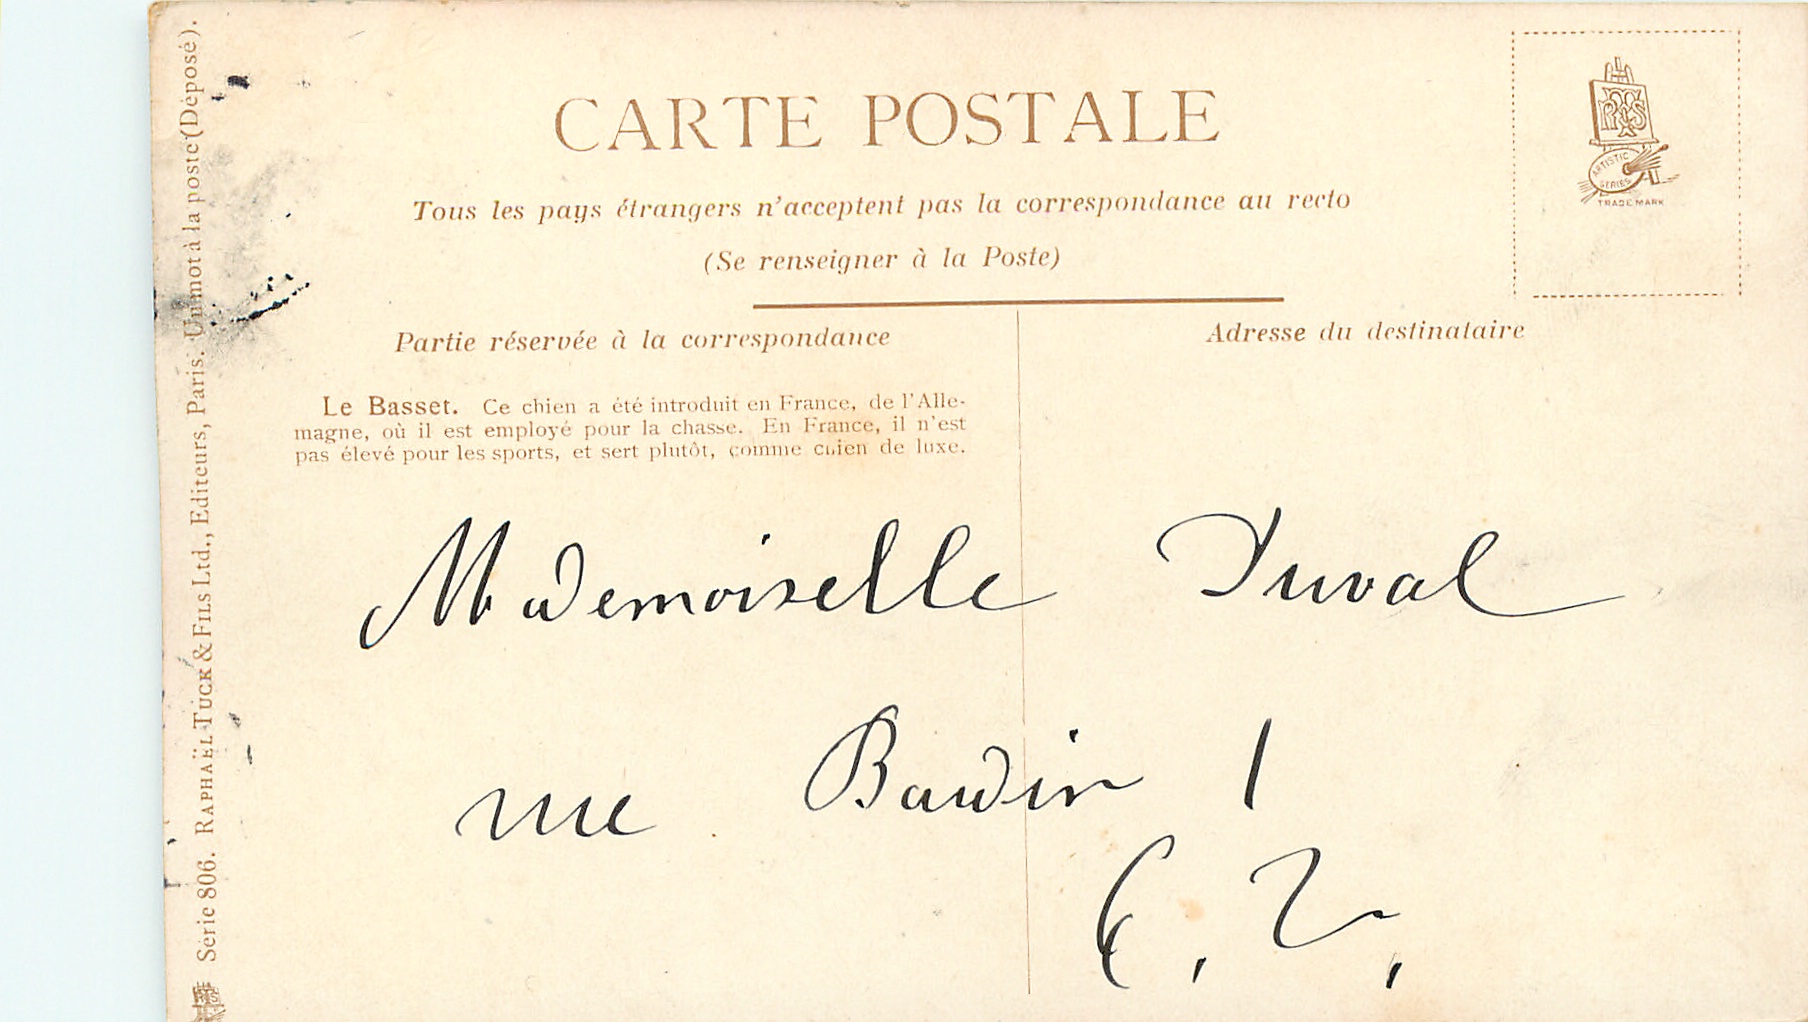 CARTE POSTALE
Tous les pays étrangers n'acceptent pas la correspondance au recto
(Se renseigner à la Poste)
Partie réservée à la correspondance
Adresse du destinataire
Le Basset. Ce chien a été introduit en France, de l'Alle-
magne, où il est employé pour la chasse. En France, il n'est
pas élevé pour les sports, et sert plutôt, comme chien de luxe.
Mademoiselle Duval
rue Baudin 1
E. V.
Série 806. RAPHAËL TUCK & FILS Ltd., Editeurs, Paris. Un mot à la poste (Déposé).
ARTISTIC
SERIES
TRADE MARK